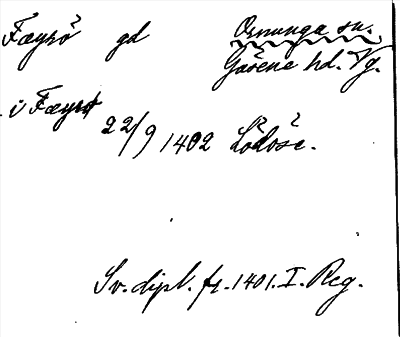 Fægrö gd Ornunga sn.
Gäsene hd. Vg.
i Fægrö
22/9 1402 Lödöse.
Sv. dipl. fr. 1401. I. Reg.